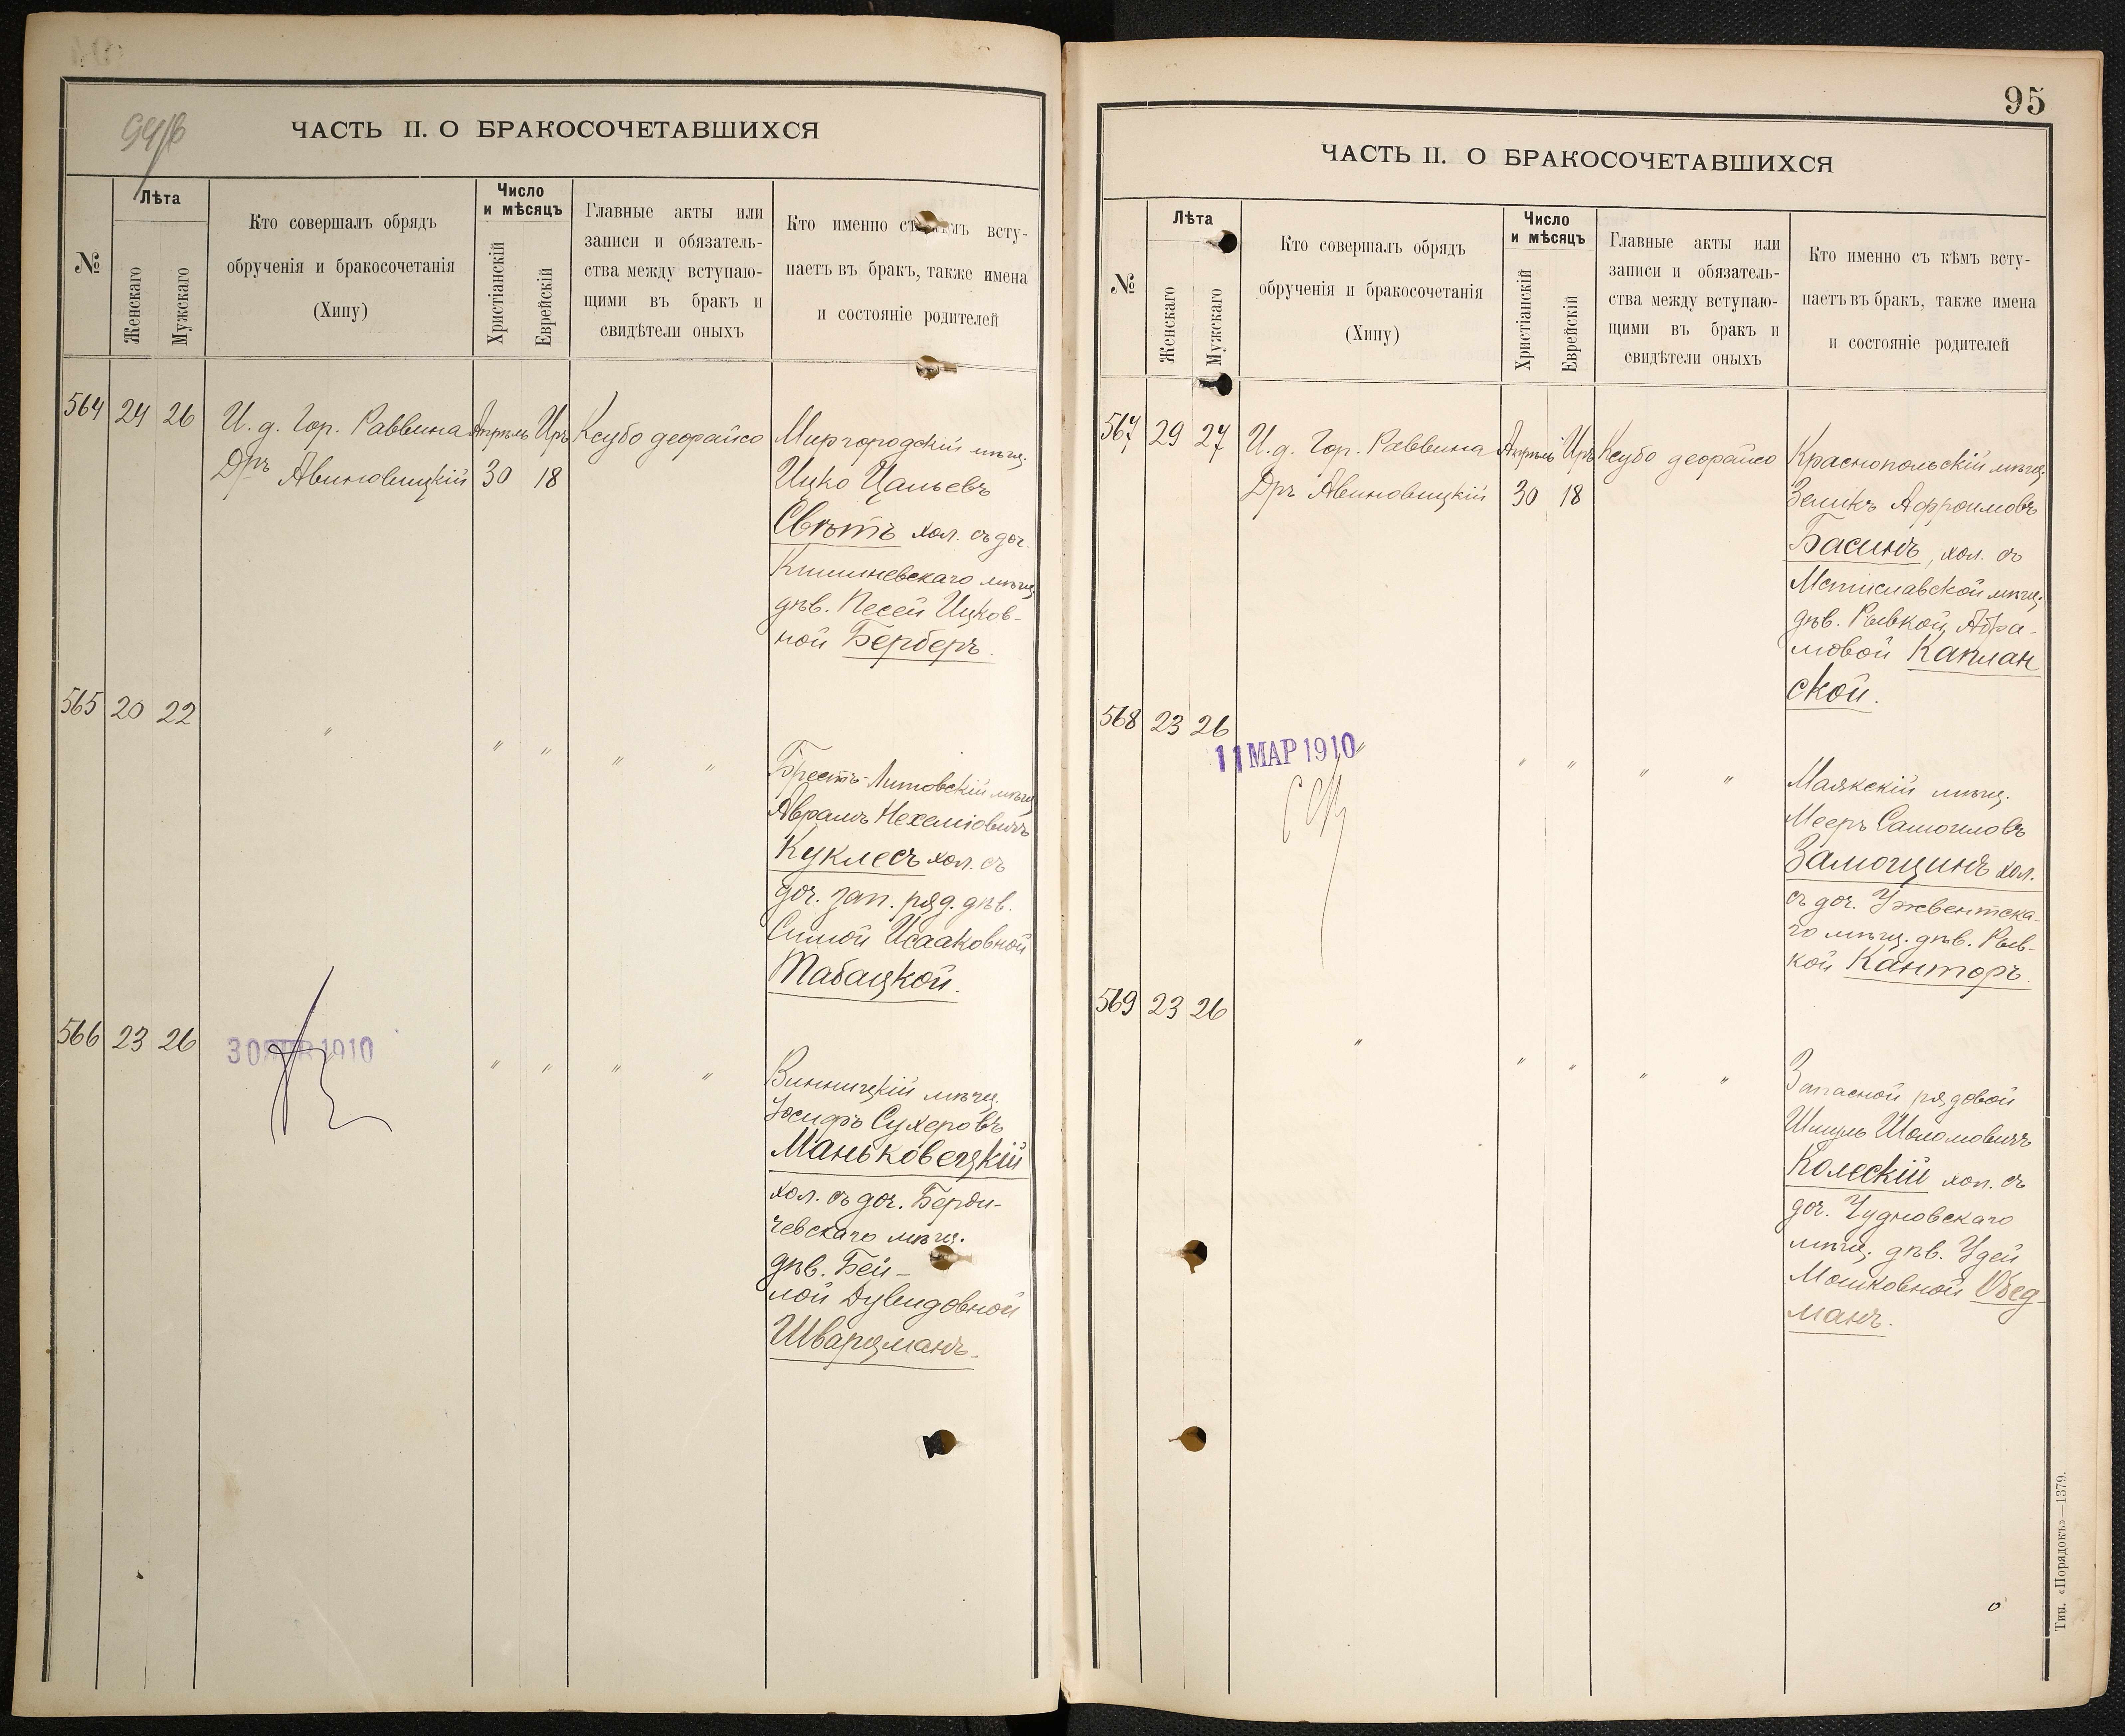 94/б
ЧАСТЬ II. О БРАКОСОЧЕТАВШИХСЯ
№
Лѣта
Женскаго
Мужскаго
Кто совершалъ обрядъ
обрученія и бракосочетанія
(Хипу)
Число
и мѣсяцъ
Христіанскій
Еврейскій
Главные акты или
записи и обязатель-
ства между вступаю-
щими въ бракъ и
свидѣтели оныхъ
Кто именно съ всту-
паетъ въ бракъ, также имена
и состояніе родителей
564 24 26 И. д. Гор. Раввина Апрѣль Иръ Ксубо деорайсо
Дръ Авиновицкій 30 18
Миргородскій мѣщ.
Ицко Цальевъ
Свѣтъ хол. съ доч.
Кишиневскаго мѣщ.
дѣв. Песей Ицков-
ной Берберъ.
565 20 22 " " " " "
Брестъ-Литовскій мѣщ.
Аврамъ Нехеміовичъ
Куклесъ хол. съ
доч. зап. ряд. дѣв.
Симой Исааковной
Табацкой.
566 23 26 1910 " " " "
Винницкій мѣщ.
Іосифъ Сухеровъ
Маньковецкій
хол. съ доч. Берди-
чевскаго мѣщ.
дѣв. Бей-
лой Дувидовной
Шварцманъ.
95
ЧАСТЬ II. О БРАКОСОЧЕТАВШИХСЯ
№
Лѣта
Женскаго
Мужскаго
Кто совершалъ обрядъ
обрученія и бракосочетанія
(Хипу)
Число
и мѣсяцъ
Христіанскій
Еврейскій
Главные акты или
записи и обязатель-
ства между вступаю-
щими въ бракъ и
свидѣтели оныхъ
Кто именно съ кѣмъ всту-
паетъ въ бракъ, также имена
и состояніе родителей
567 29 27 И. д. Гор. Раввина Апрѣль Иръ Ксубо деорайсо
Дръ Авиновицкій 30 18
Краснопольскій мѣщ.
Зеликъ Афроимовъ
Басинъ, хол. съ
Мстиславской мѣщ.
дѣв. Рывкой Абра-
мовой Каплан
ской.
568 23 26 " " " " "
11 МАР 1910
Маякскій мѣщ.
Мееръ Самоиловъ
Замощинъ хол.
съ доч. Ужвентска-
го мѣщ. дѣв. Рыв-
кой Канторъ.
569 23 26 " " " " "
Запасной рядовой
Шмуль Шоломовичъ
Колескій хол. съ
доч. Чудновскаго
мѣщ. дѣв. Удей
Мошковной Обед-
манъ.
Тип. «Порядокъ»—1379.